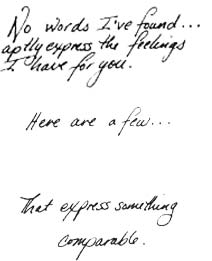 No words I've found...
aptly express the feelings
I have for you.
Here are a few...
That express something
comparable.